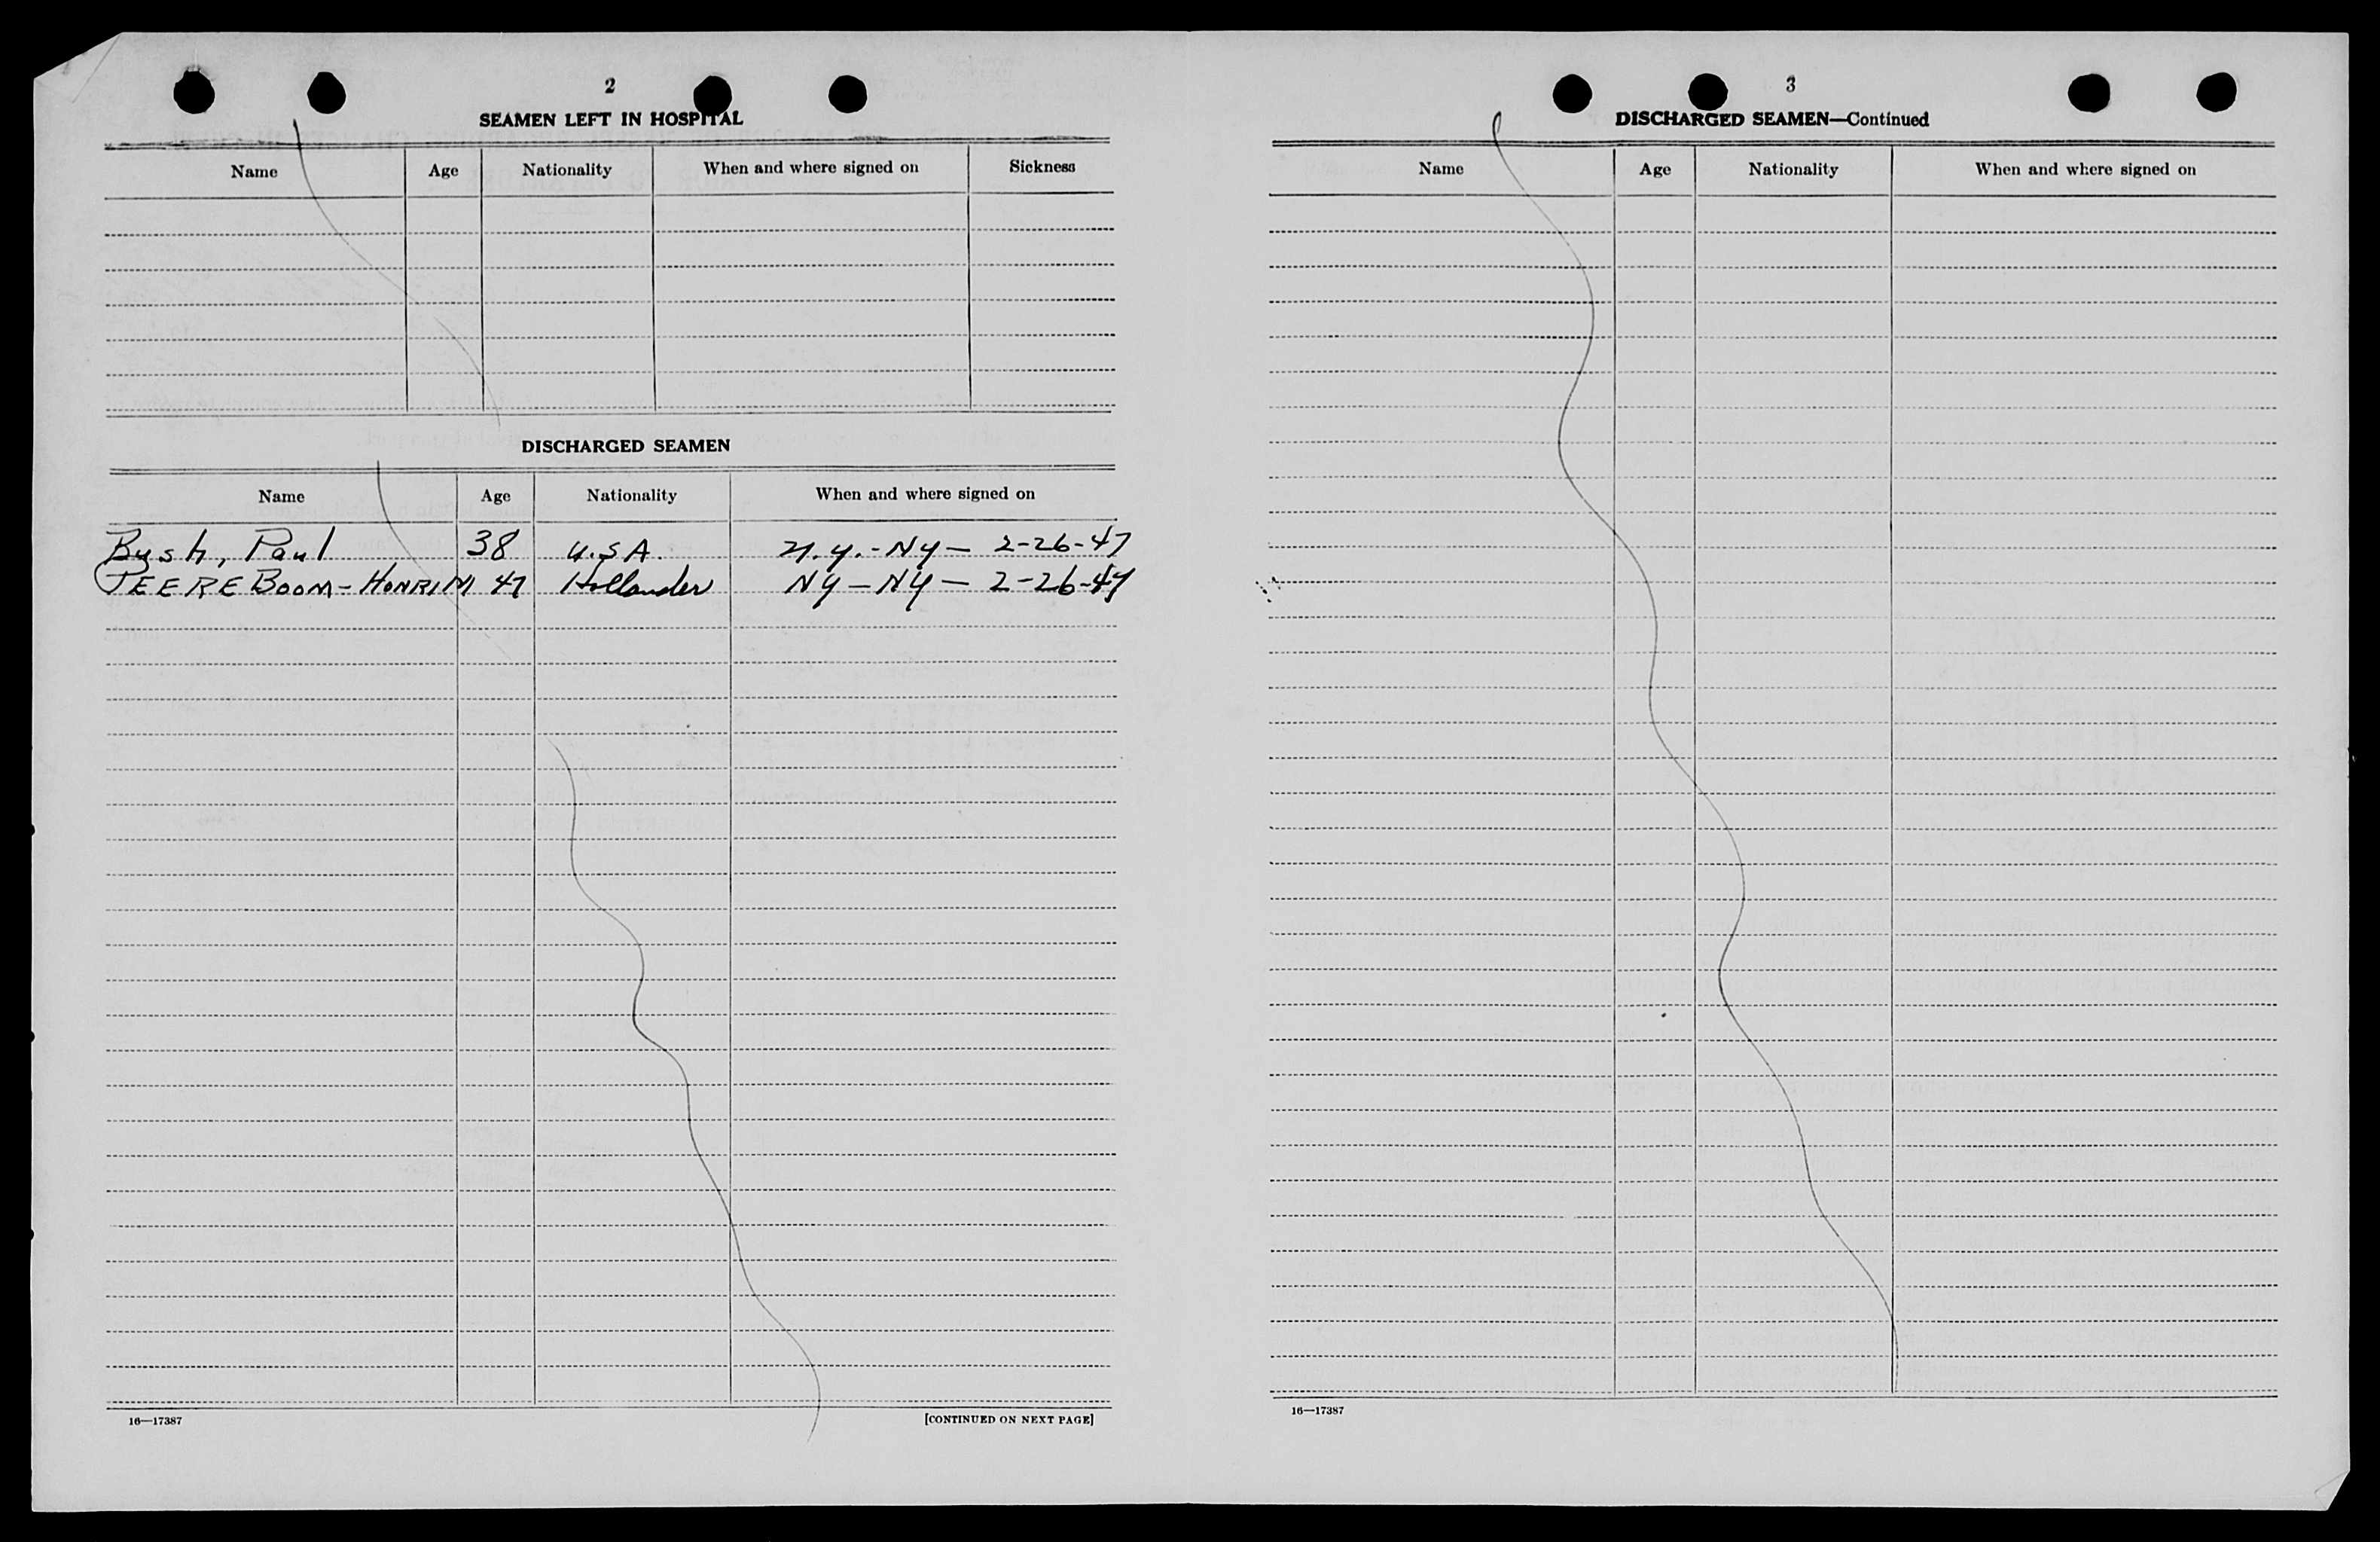 2
SEAMEN LEFT IN HOSPITAL
Name Age Nationality When and where signed on Sickness
DISCHARGED SEAMEN
Name Age Nationality When and where signed on
Bush, Paul 38 U.S.A. N.Y.-NY- 2-26-47
PEEREBOOM-HONRI M 47 Hollander NY-NY- 2-26-47
16—17387 [CONTINUED ON NEXT PAGE]
3
DISCHARGED SEAMEN—Continued
Name Age Nationality When and where signed on
16—17387